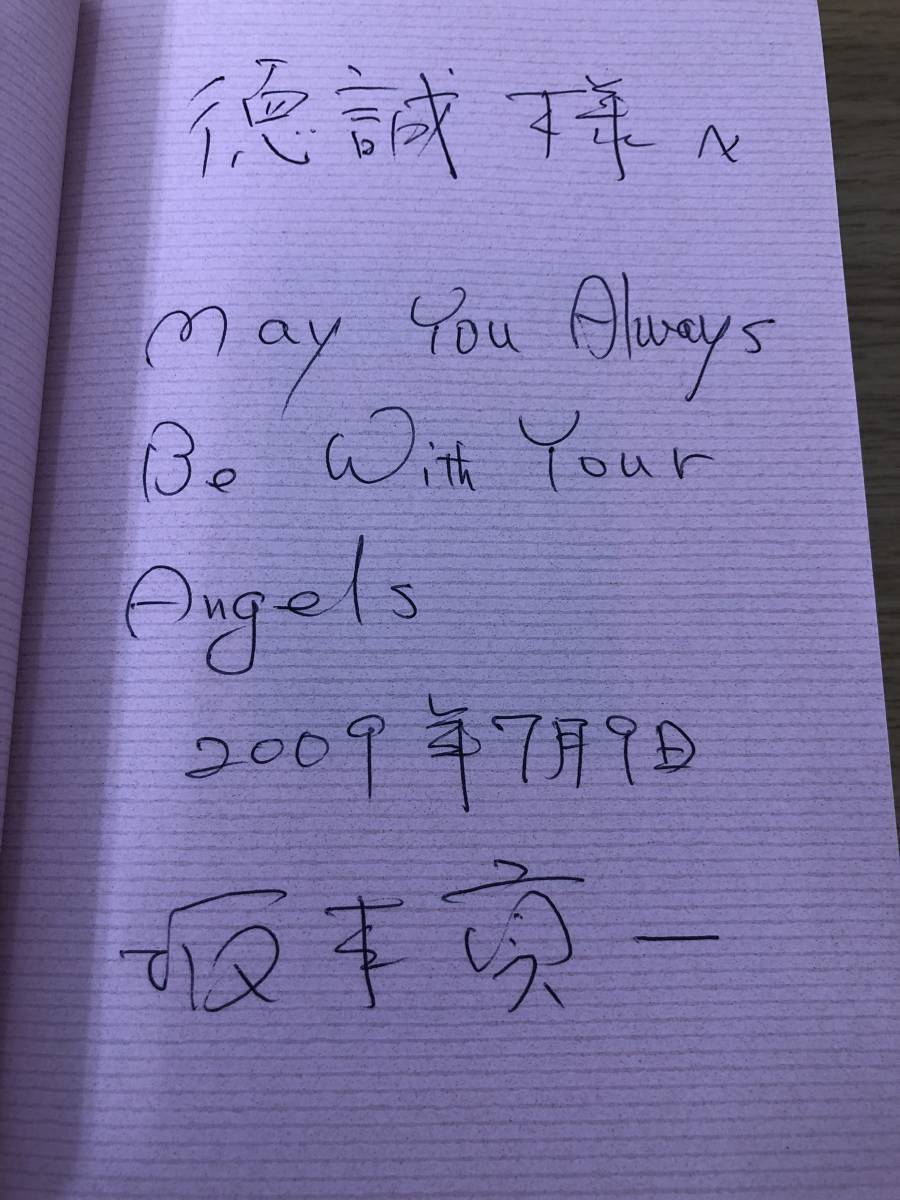 徳誠 様 へ
May You Always
Be With Your
Angels
2009年7月9日
坂本貢一